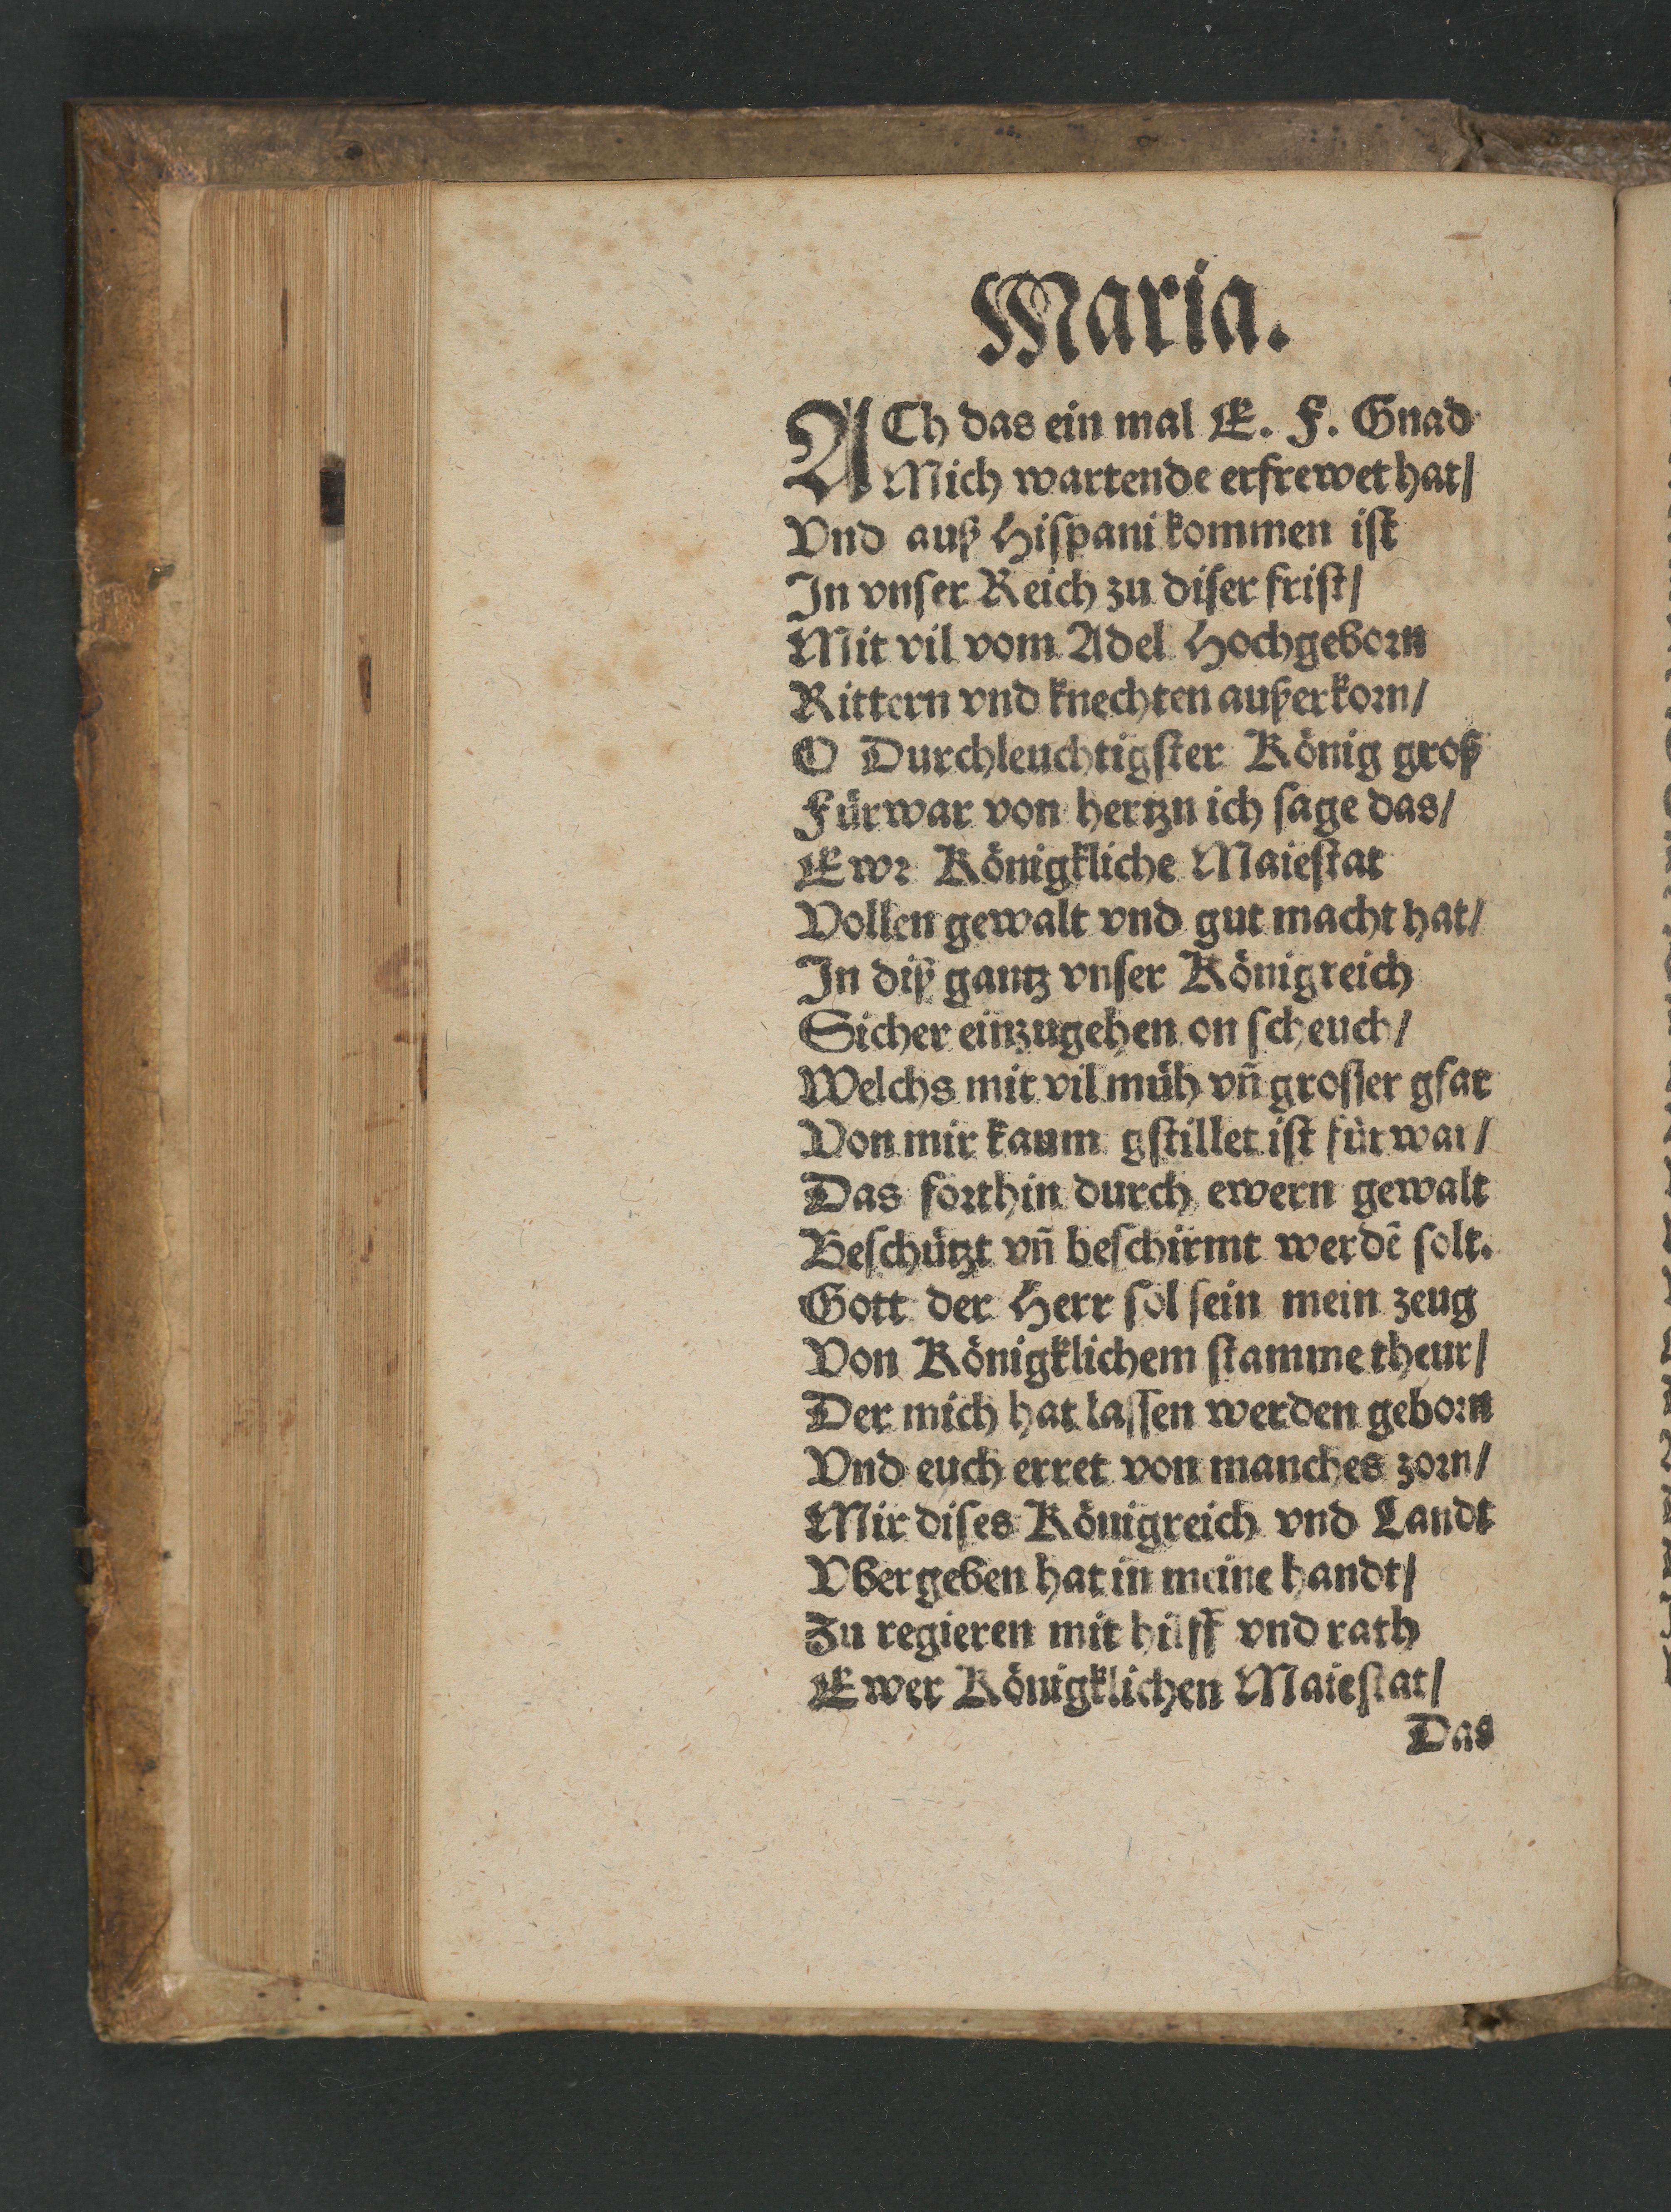 Maria.
ACh das ein mal E. F. Gnad
Mich wartende erfrewet hat/
Vnd auß Hiſpani kommen iſt
In vnſer Reich zu diſer friſt/
Mit vil vom Adel Hochgeborn
Rittern vnd knechten außerkorn/
O Durchleuchtigſter König groß
Fürwar von hertzn ich ſage das/
Ewr Königkliche Maieſtat
Vollen gewalt vnd gut macht hat/
In diß gantz vnſer Königreich
Sicher einzugehen on ſcheuch/
Welchs mit vil müh vn̄ groſſer gfar
Von mir kaum gſtillet iſt fürwar/
Das forthin durch ewern gewalt
Beſchützt vn̄ beſchirmt werdē ſolt.
Gott der Herr ſol ſein mein zeug
Von Königklichem ſtamme theur/
Der mich hat laſſen werden geborn
Vnd euch erret von manches zorn/
Mir diſes Königreich vnd Landt
Vbergeben hat in meine handt/
Zu regieren mit hilff vnd rath
Ewer Königklichen Maieſtat/
Das